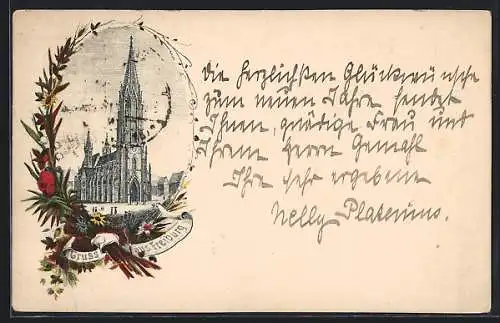 Die herzlichsten Glückwünsche
zum neuen Jahre sendet
Ihnen, gnädige Frau und
Ihrem Herrn Gemahl
Ihre sehr ergebene
Nelly Platenius.
Gruss aus Freiburg